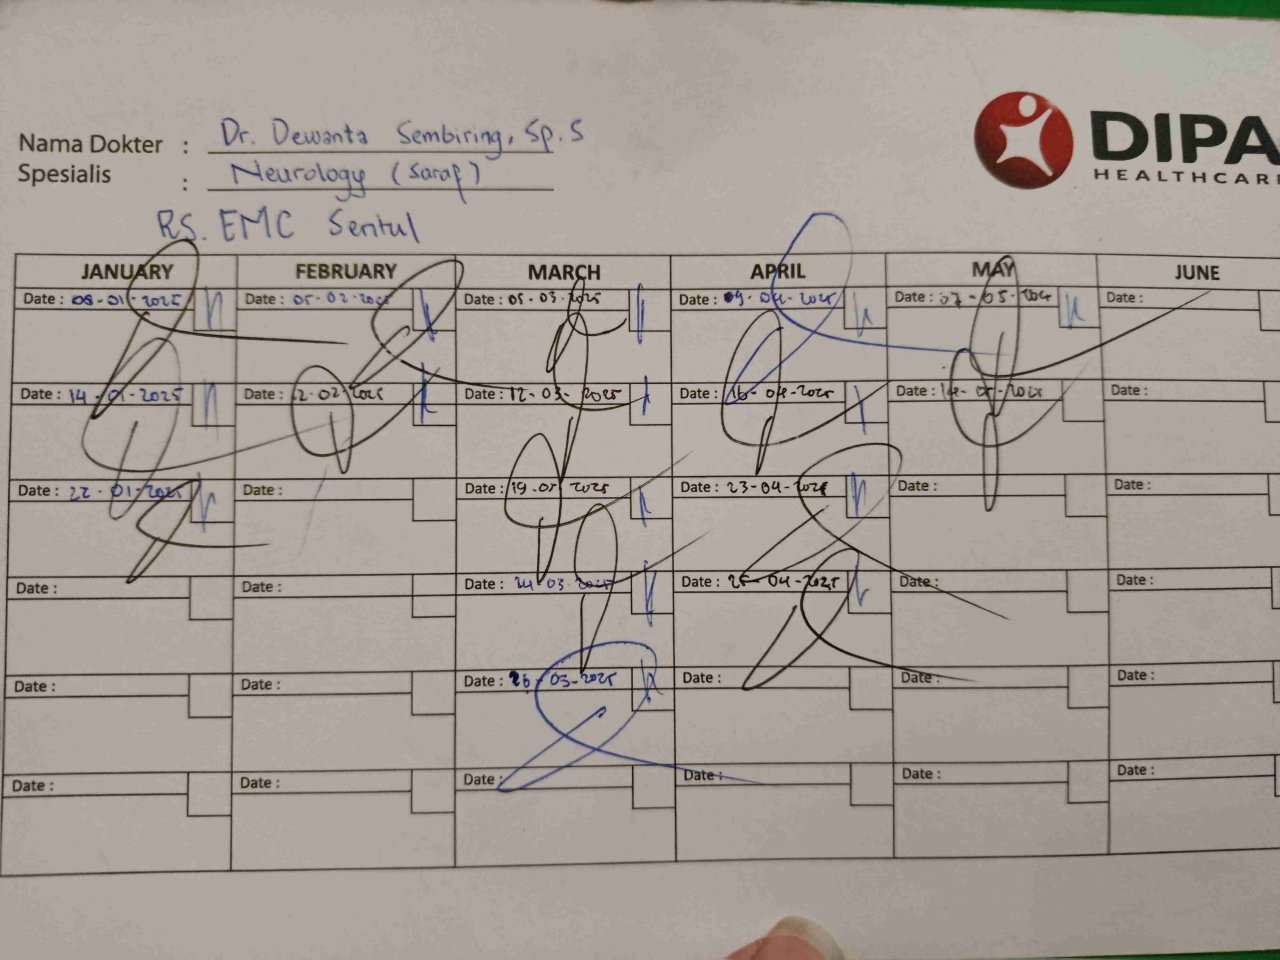 DIPA
HEALTHCARE
Nama Dokter : Dr. Dewanta Sembiring, Sp.S
Spesialis : Neurology (Saraf)
RS. EMC Sentul
JANUARY FEBRUARY MARCH APRIL MAY JUNE
Date : 08-01-2025 Date : 05-02-2025 Date : 05-03-2025 Date : 09-04-2025 Date : 07-05-2025 Date :
Date : 14-01-2025 Date : 12-02-2025 Date : 12-03-2025 Date : 16-04-2025 Date : 14-05-2025 Date :
Date : 22-01-2025 Date : Date : Date : 23-04-2025 Date : Date :
Date : Date : Date : 24-03-2025 Date : 25-04-2025 Date : Date :
Date : Date : Date : 26-03-2025 Date : Date : Date :
Date : Date : Date : Date : Date : Date :